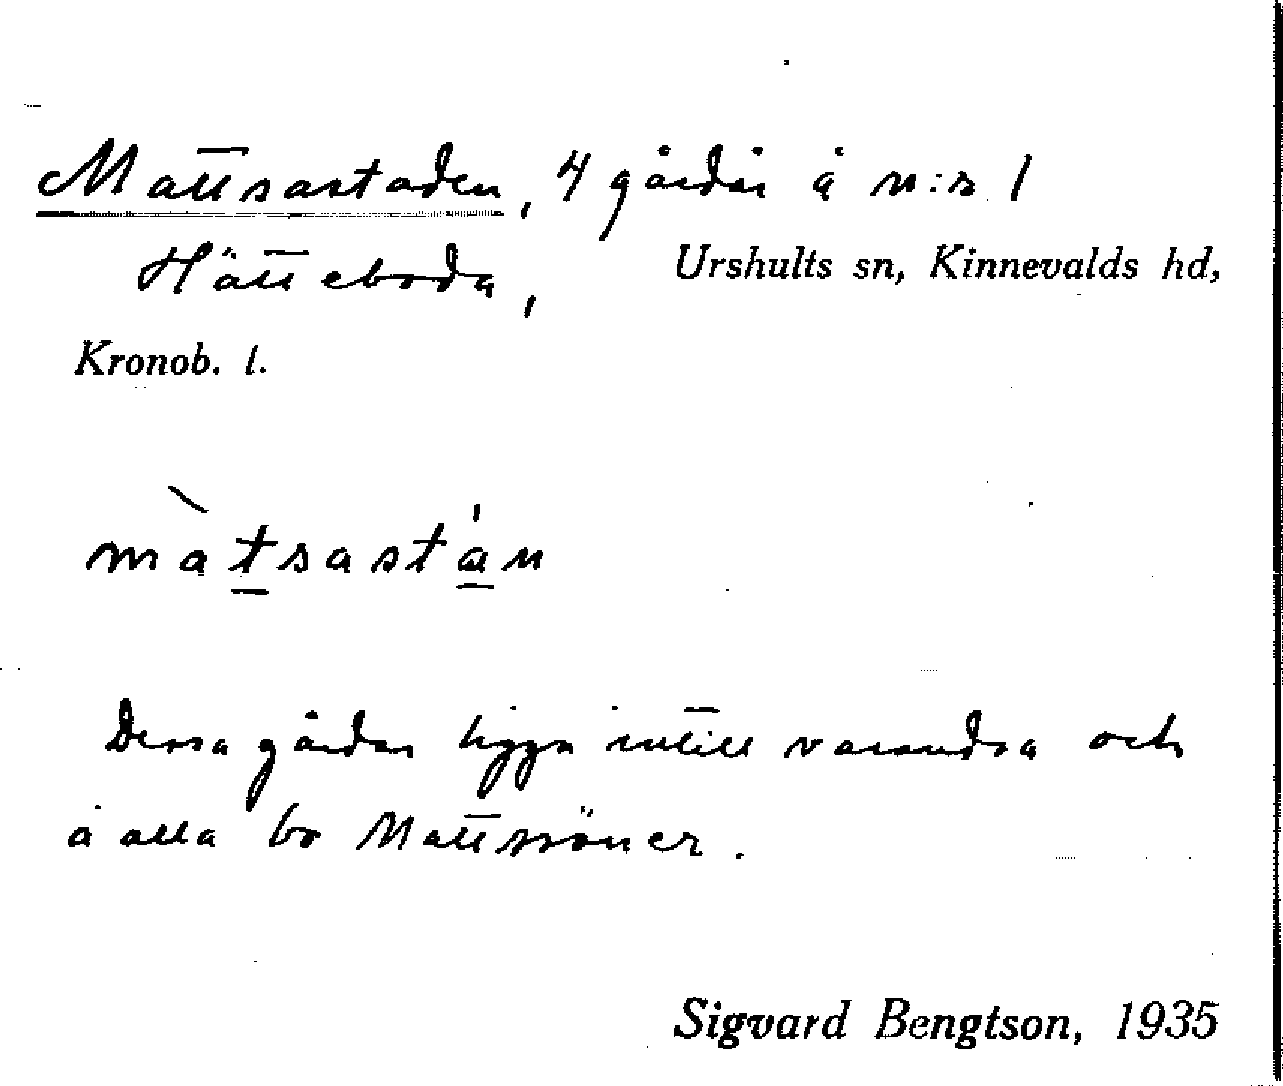 Mattsastaden, 4 gårdar å n:r 1
Hätteboda, Urshults sn, Kinnevalds hd,
Kronob. l.
màtsastán
Dessa gårdar ligga intill varandra och
å alla bo Mattssöner.
Sigvard Bengtson, 1935